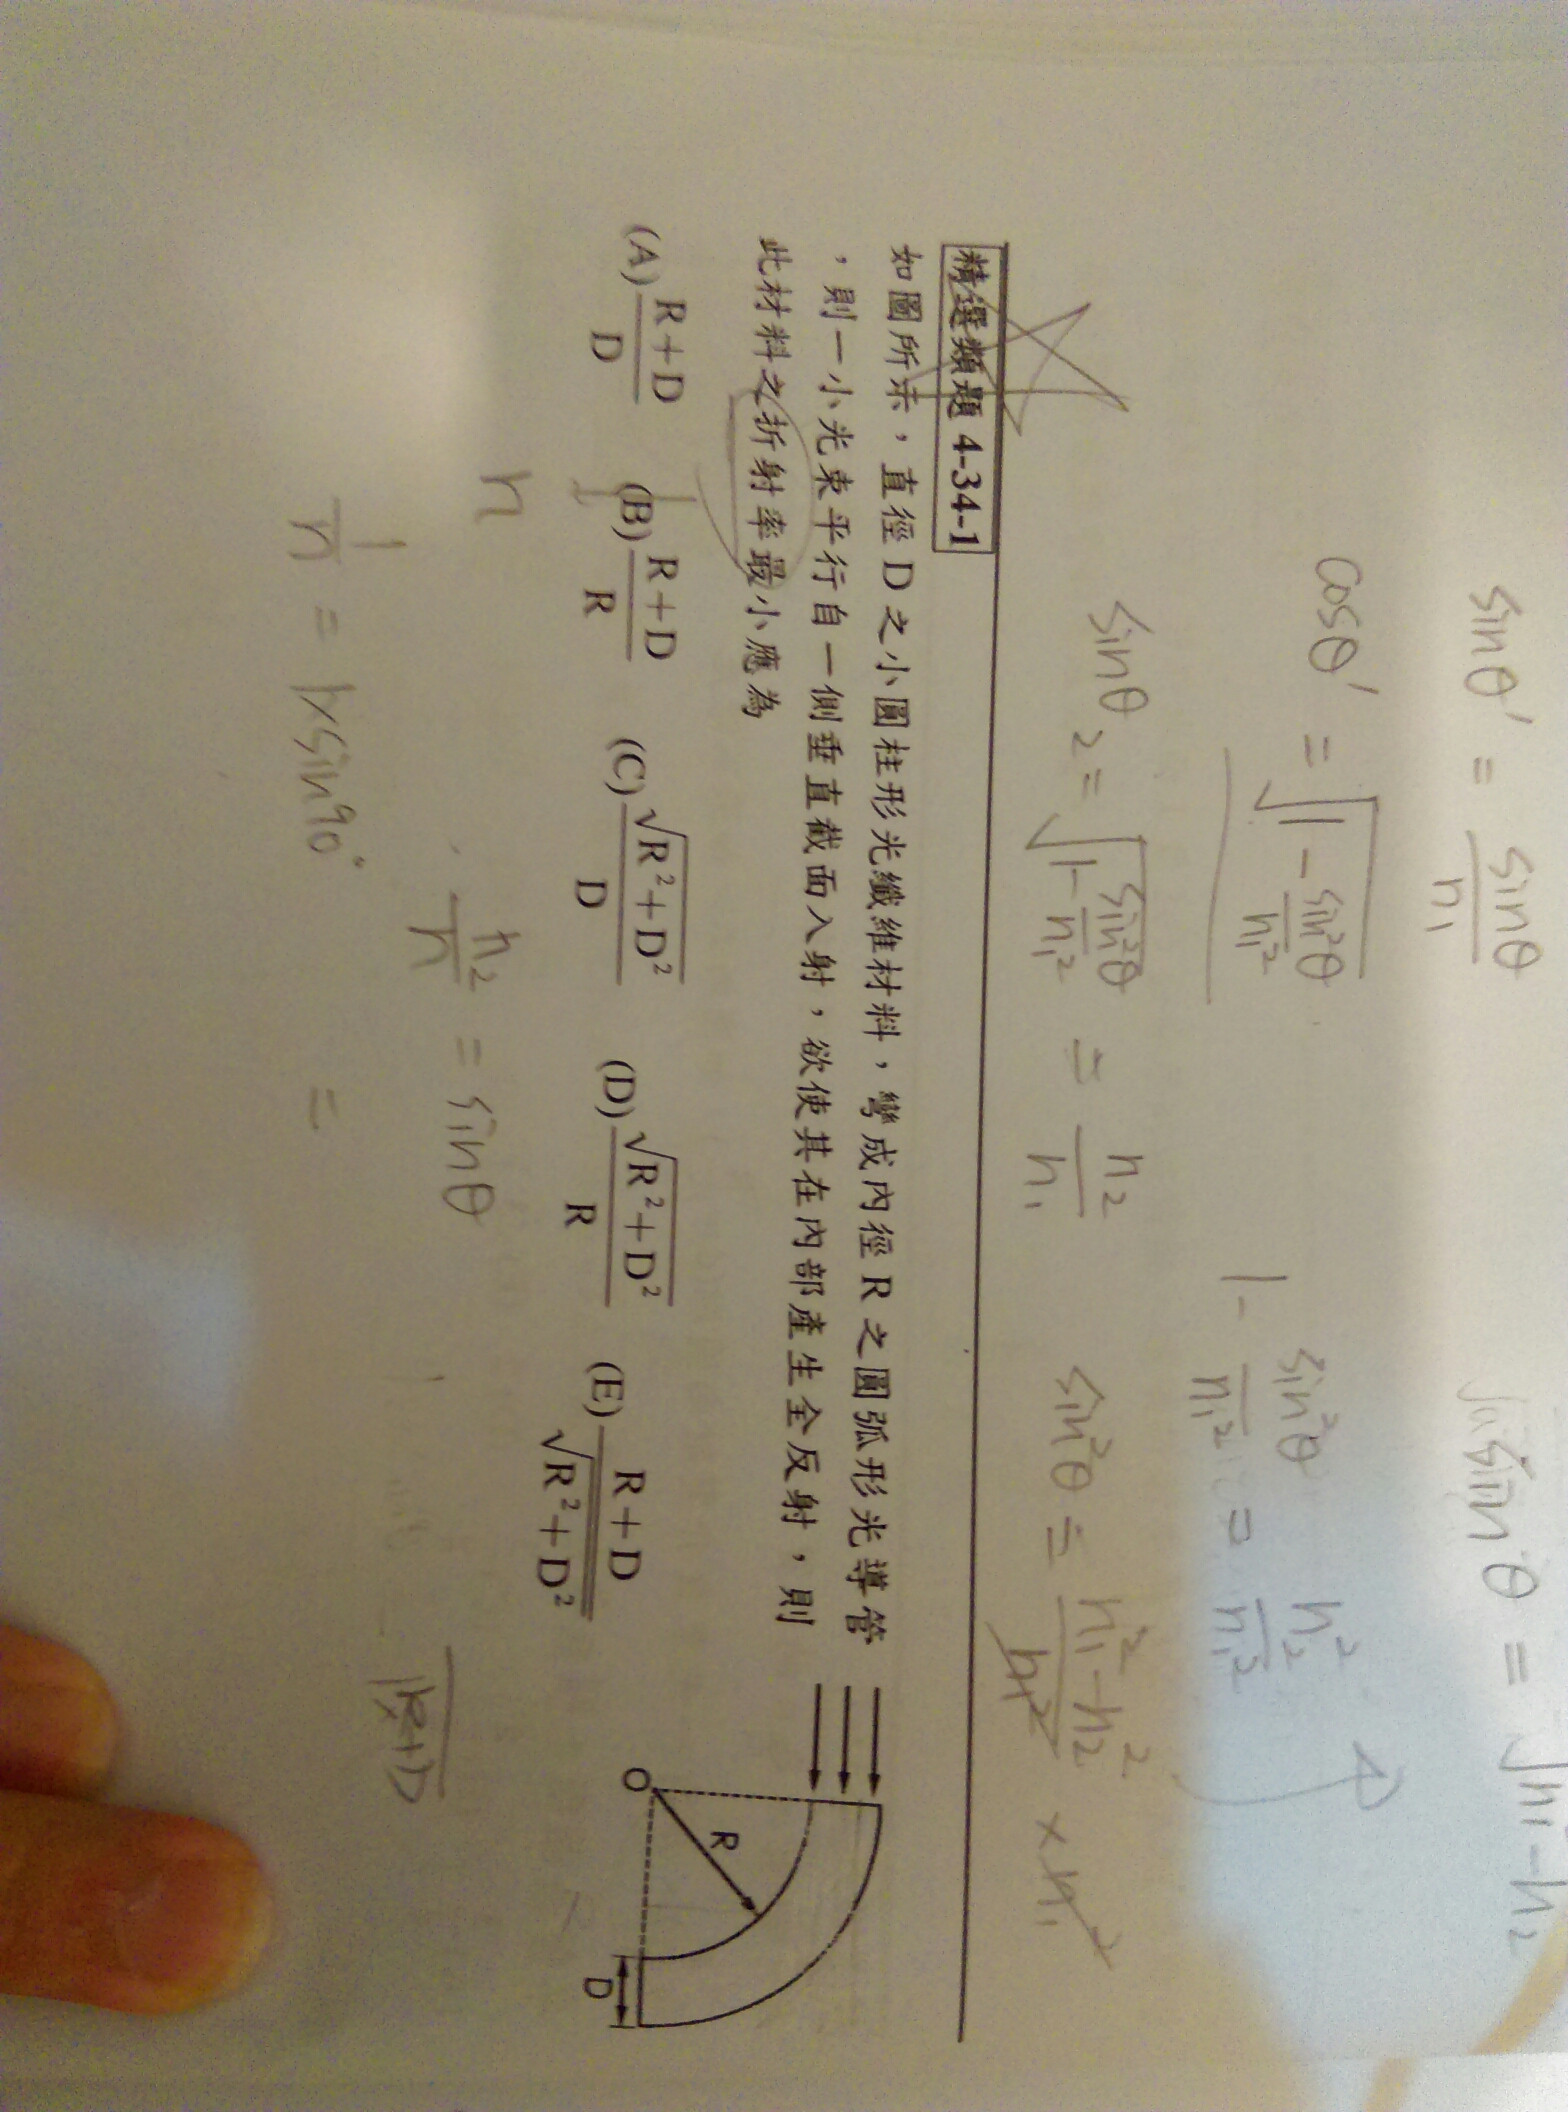 sinθ' = sinθ / n₁
√n₁ sinθ = √n₁² - n₂
cosθ' = √(1 - sin²θ / n₁²)
1 - sin²θ / n₁² = n₂² / n₁²
sinθ₂ = √(1 - sin²θ / n₁²) = n₂ / n₁
sin²θ = (n₁² - n₂²) / n₁² × n₁²
精選類題 4-34-1
如圖所示，直徑 D 之小圓柱形光纖維材料，彎成內徑 R 之圓弧形光導管
，則一小光束平行自一側垂直截面入射，欲使其在內部產生全反射，則
此材料之折射率最小應為
(A) R+D / D (B) R+D / R (C) √R²+D² / D (D) √R²+D² / R (E) R+D / √R²+D²
O
R
D
n
n₂ / n = sinθ
1 / n = 1×sin90°
=
R+D